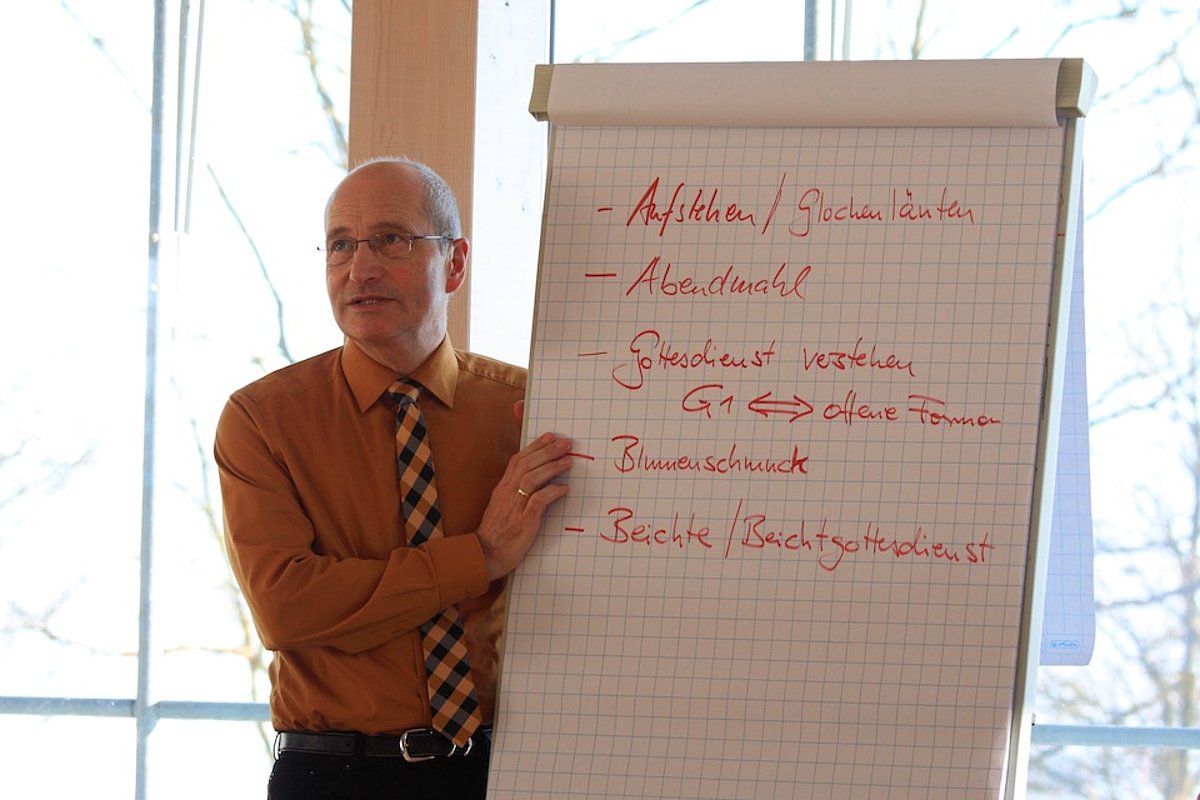 - Aufstehen / Glockenläuten
- Abendmahl
- Gottesdienst verstehen
G1 ⇔ offene Formen
- Blumenschmuck
- Beichte / Beichtgottesdienst